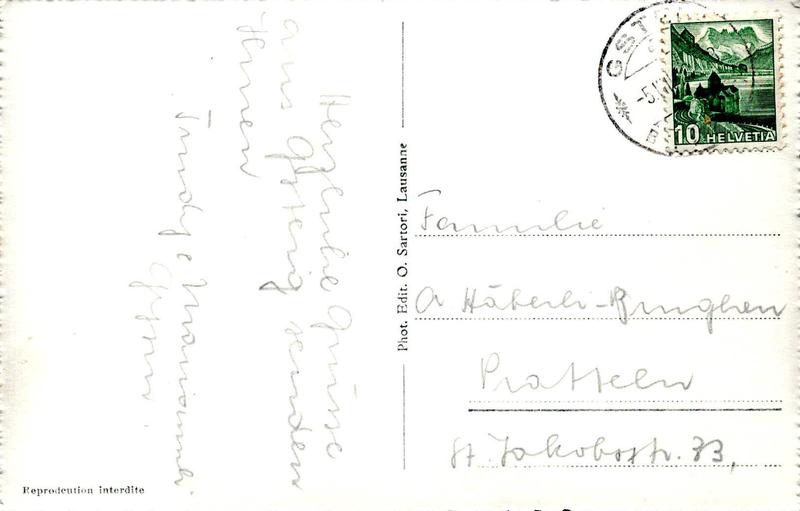 Herzliche Grüsse
aus Gsteig senden
Ihnen
Trudy & Mariannli
Phot. Edit. O. Sartori, Lausanne
GSTEIG
10 HELVETIA
Familie
A Häberli-Brughen
Pratteln
St. Jakobostr. 73,
Reprodcution interdite